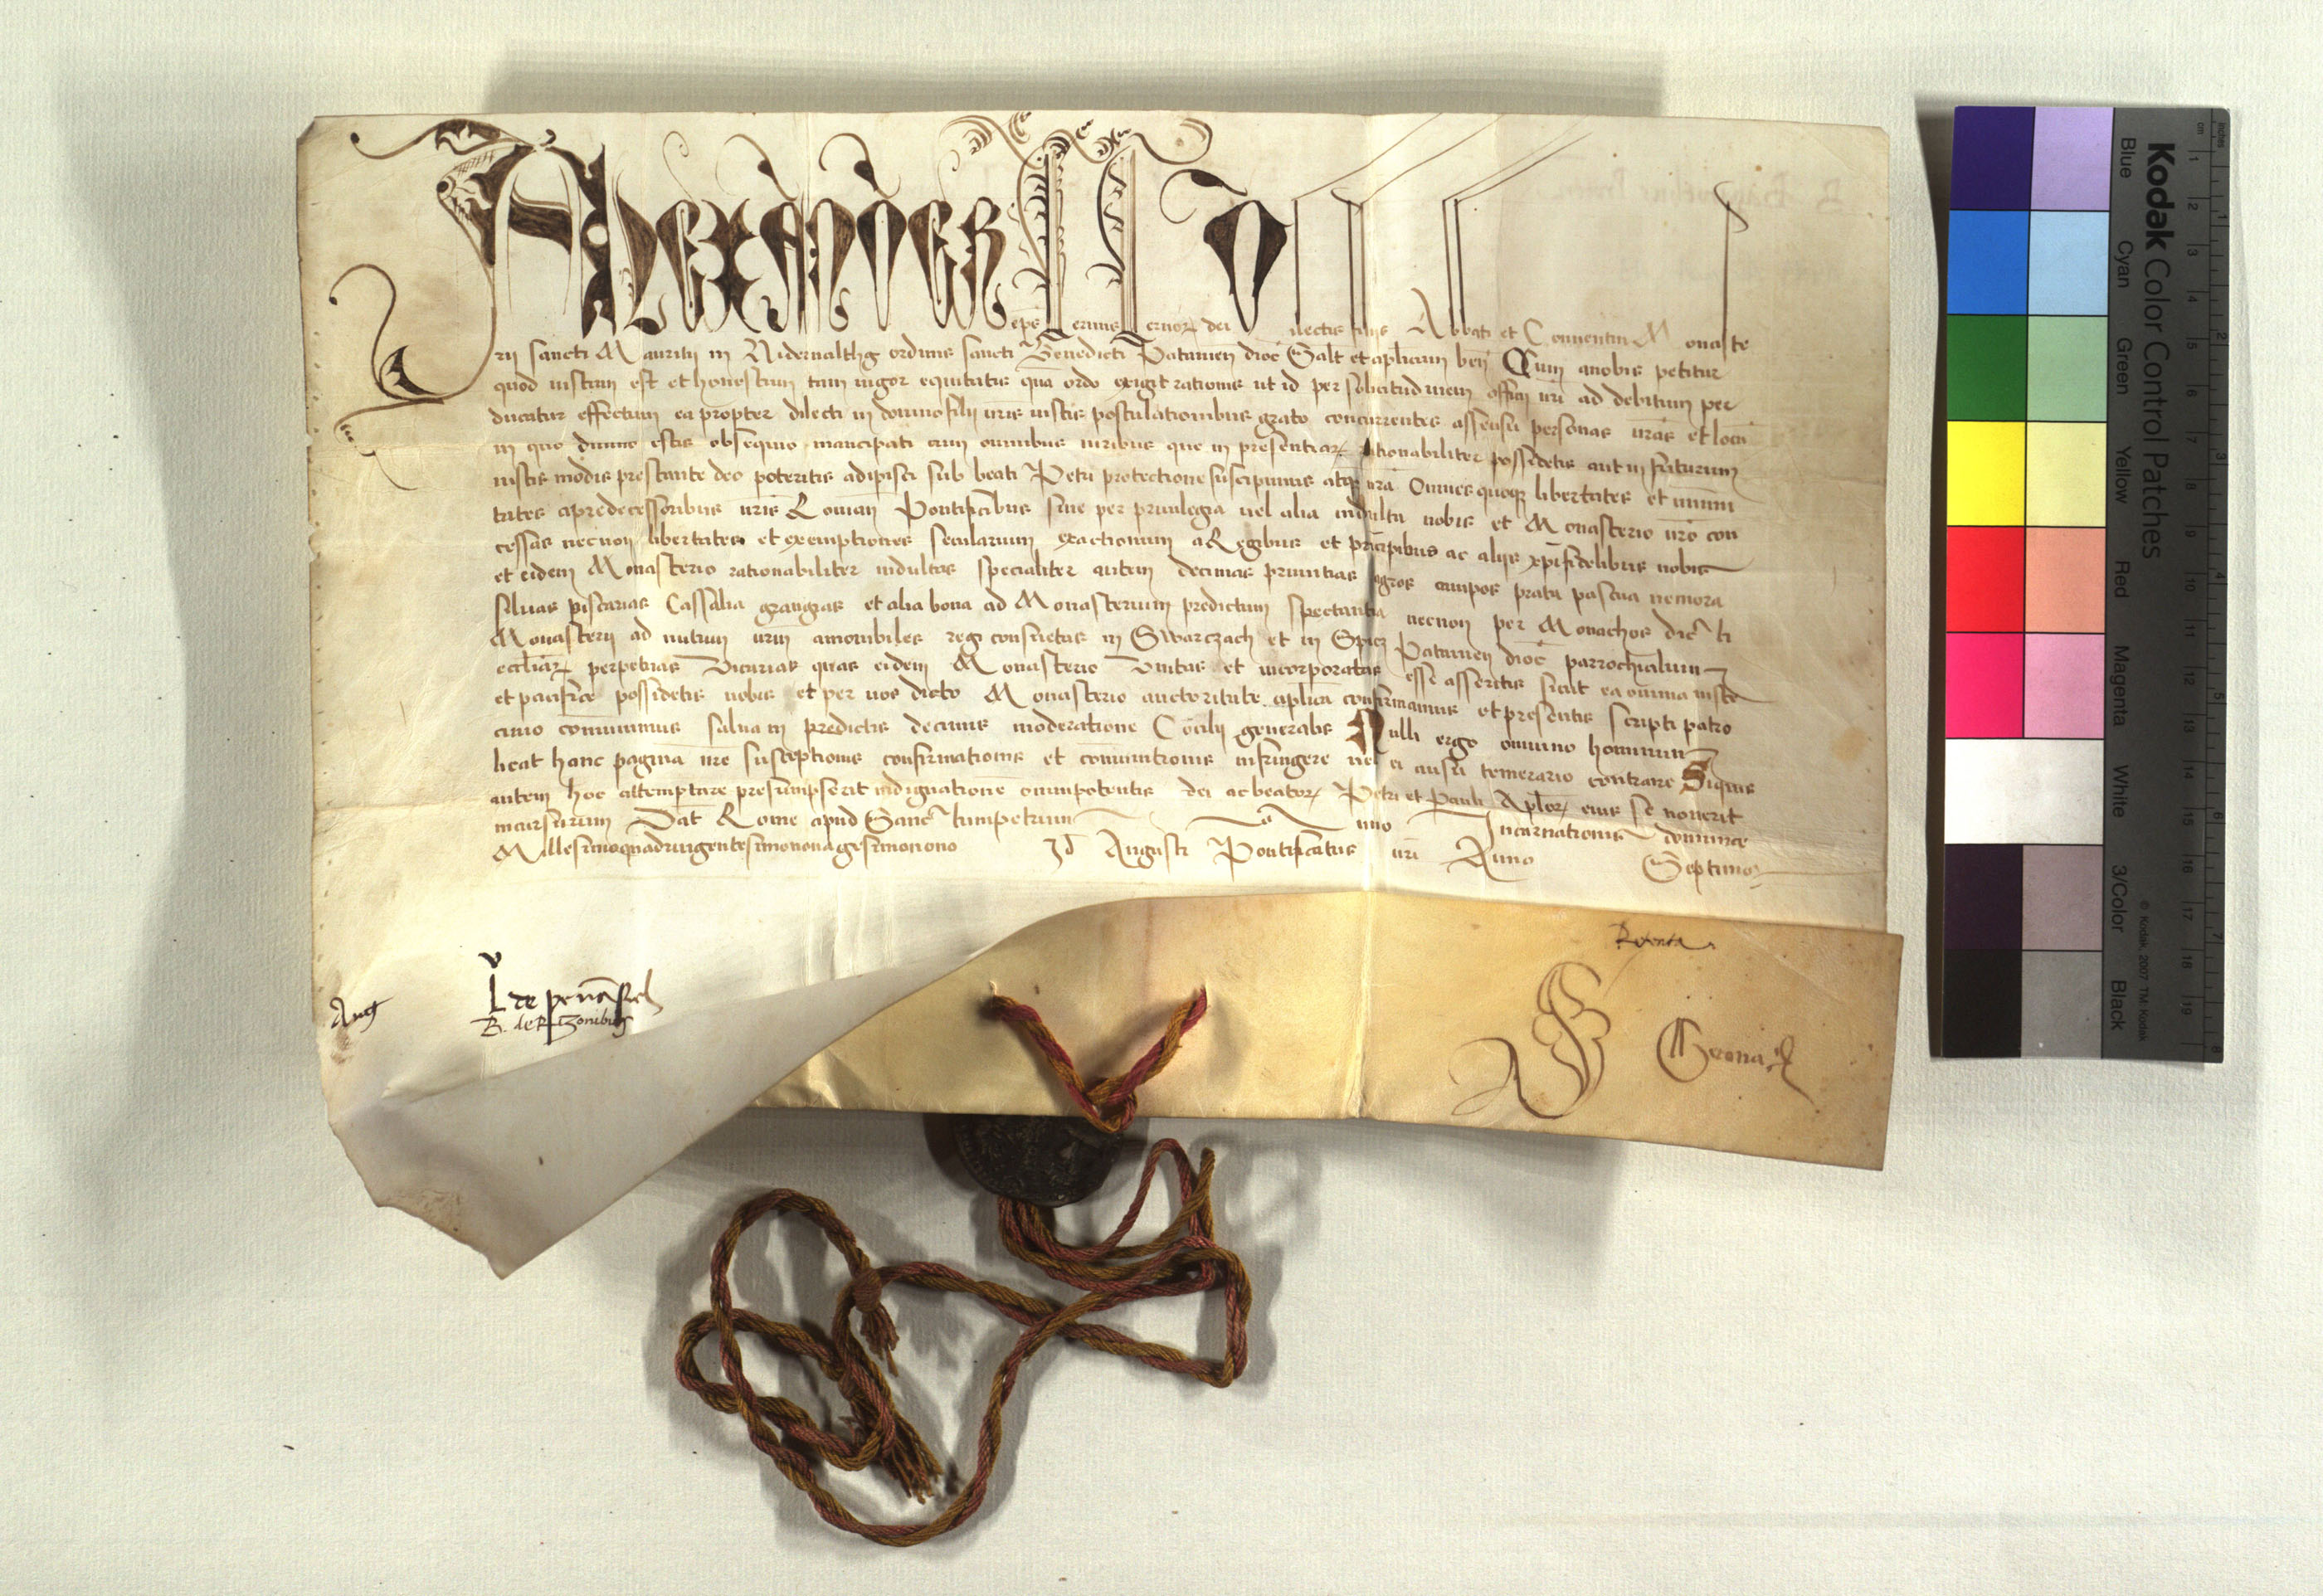 Alexander eps seruus seruor dei Dilectis filijs Abbati et Conuentui Monaste
rij sancti Mauritij in Nidernalthg ordinis sancti Benedicti Patauien dioc Salt et aplicam ben Cum a nobis petitur
quod iustum est et honestum tam uigor equitatis qua ordo exigit rationis ut id per sollicitudinem officij nri ad debitum per
ducatur effectum ea propter dilecti in domino filij uris iustis postulationibus grato concurrentes assensu personas uras et locu
in quo diuino estis obsequio mancipati cum omnibus iuribus que in presentiar rationabiliter possidetis aut in futurum
iustis modis prestante deo poteritis adipisci sub beati Petri protectione suscipimus atq nra Omnes quoq libertates et imuni
tates a predecessoribus nris Roman Pontificibus siue per priuilegia uel alia indulta uobis et Monasterio uro con
cessas necnon libertates et exemptiones secularium exactionum a Regibus et principibus ac alijs xpifidelibus uobis
et eidem Monasterio rationabiliter indultas specialiter autem decimas primitias agros campos prata pascua nemora
siluas piscarias Cassalia grangias et alia bona ad Monasterium predictum spectantia necnon per Monachos dicti
Monasterij ad nutum urm amouibiles regi consuetas in Swarczach et in Spicz Patauien dioc parrochialium
eccliar perpetuas Vicarias quas eidem Monasterio Unitas et incorporatas esse asseritis sicut ea omnia iuste
et pacifice possidetis uobis et per uos dicto Monasterio auctoritate aplica confirmamus et presentis scripti patro
cinio comunimus salua in predictis decimis moderatione Cocilij generalis Nulli ergo omnino hominum
liceat hanc pagina nre susceptionis confirmationis et comunitionis infringere uel ei ausu temerario contraire Siquis
autem hoc attemptare presumpserit indignatione omnipotentis dei ac beator Petri et Pauli Aplor eius se nouerit
incursurum Dat Rome apud Sanctumpetrum Anno Incarnationis dominice
Millesimoquadringentesimononagesimonono Id Augusti Pontificatus nri Anno Septimo
Rescripta
Aug
L de pennafiel
B. de Rizonibus
G Gerona
Kodak Color Control Patches
© Kodak, 2007 TM: Kodak
Blue Cyan Green Yellow Red Magenta White 3/Color Black
cm 1 2 3 4 5 6 7 8 9 10 11 12 13 14 15 16 17 18 19
inches 1 2 3 4 5 6 7 8